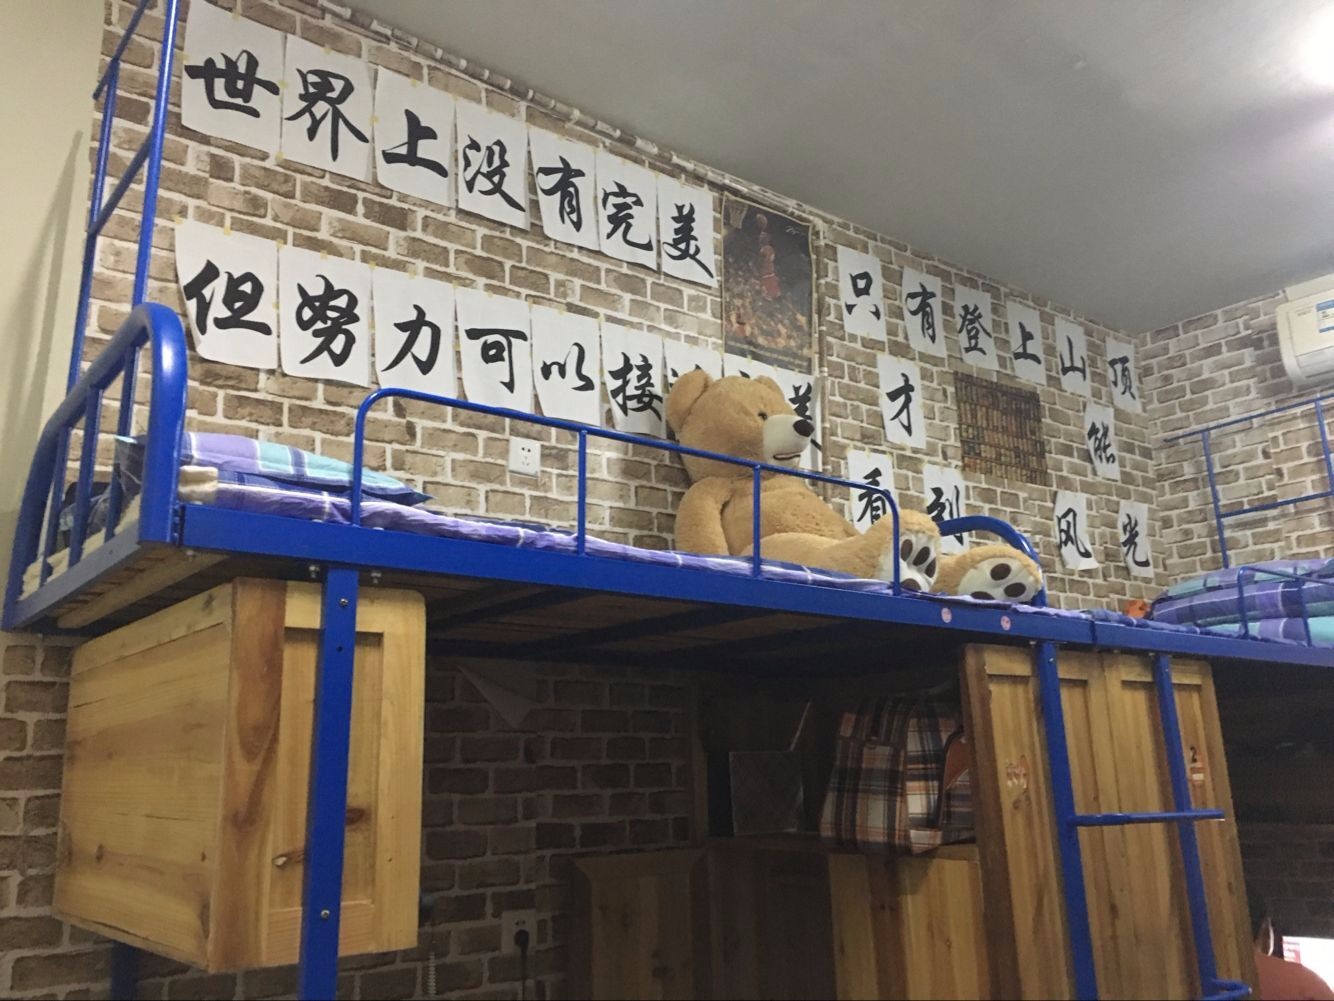 世界上没有完美
但努力可以接近完美
只有登上山顶
才能
看到风光
2